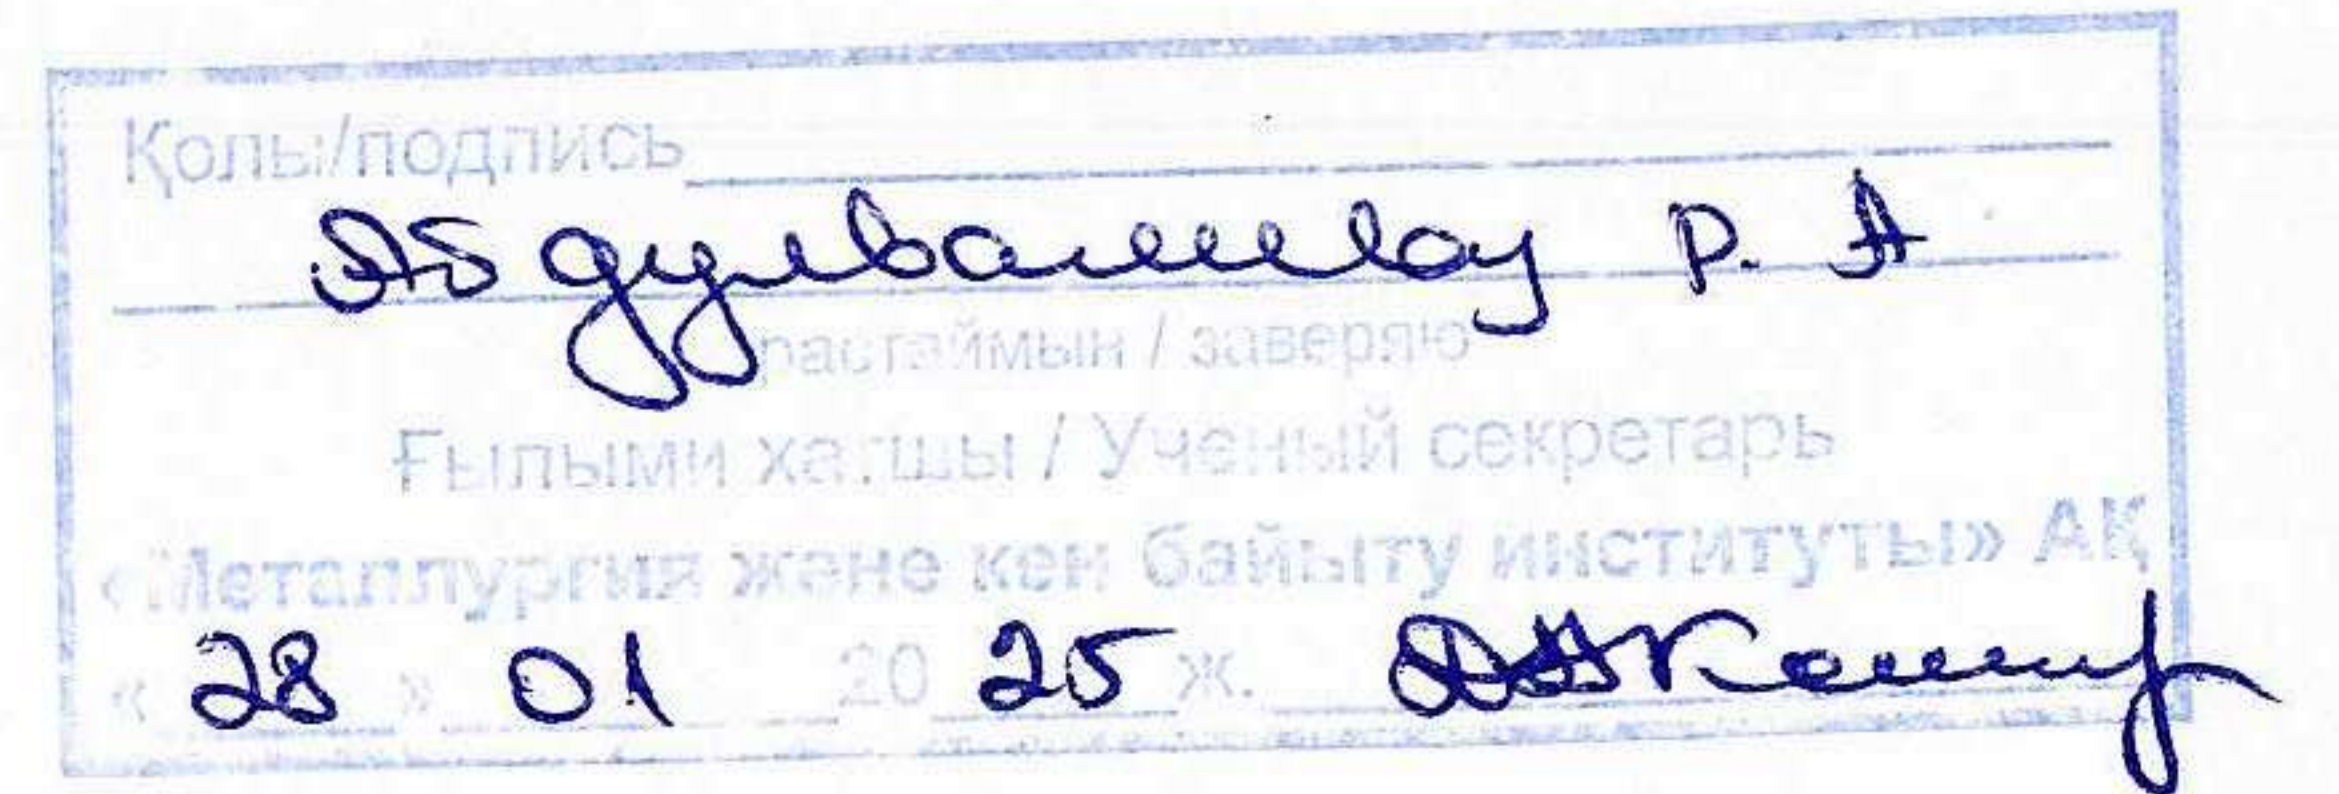 Қолы/подпись
Абдулвалиеву Р. А
растаймын / заверяю
Ғылыми хатшы / Ученый секретарь
«Металлургия және кен байыту институты» АҚ
« 28 » 01 20 25 ж.